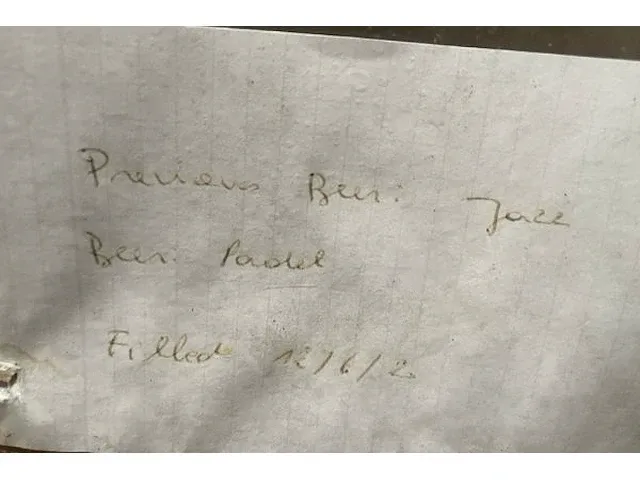 Previous Beer: Jace
Beer: Padel
Filled 12/6/2